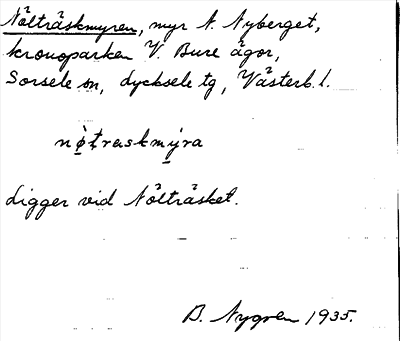 Nölträskmyren, myr N. Nyberget,
kronoparken V. Bure ägor,
Sorsele sn, Lycksele tg, Västerb. l.
nø̀traskmýra
Ligger vid Nölträsket.
B. Nygren 1935.